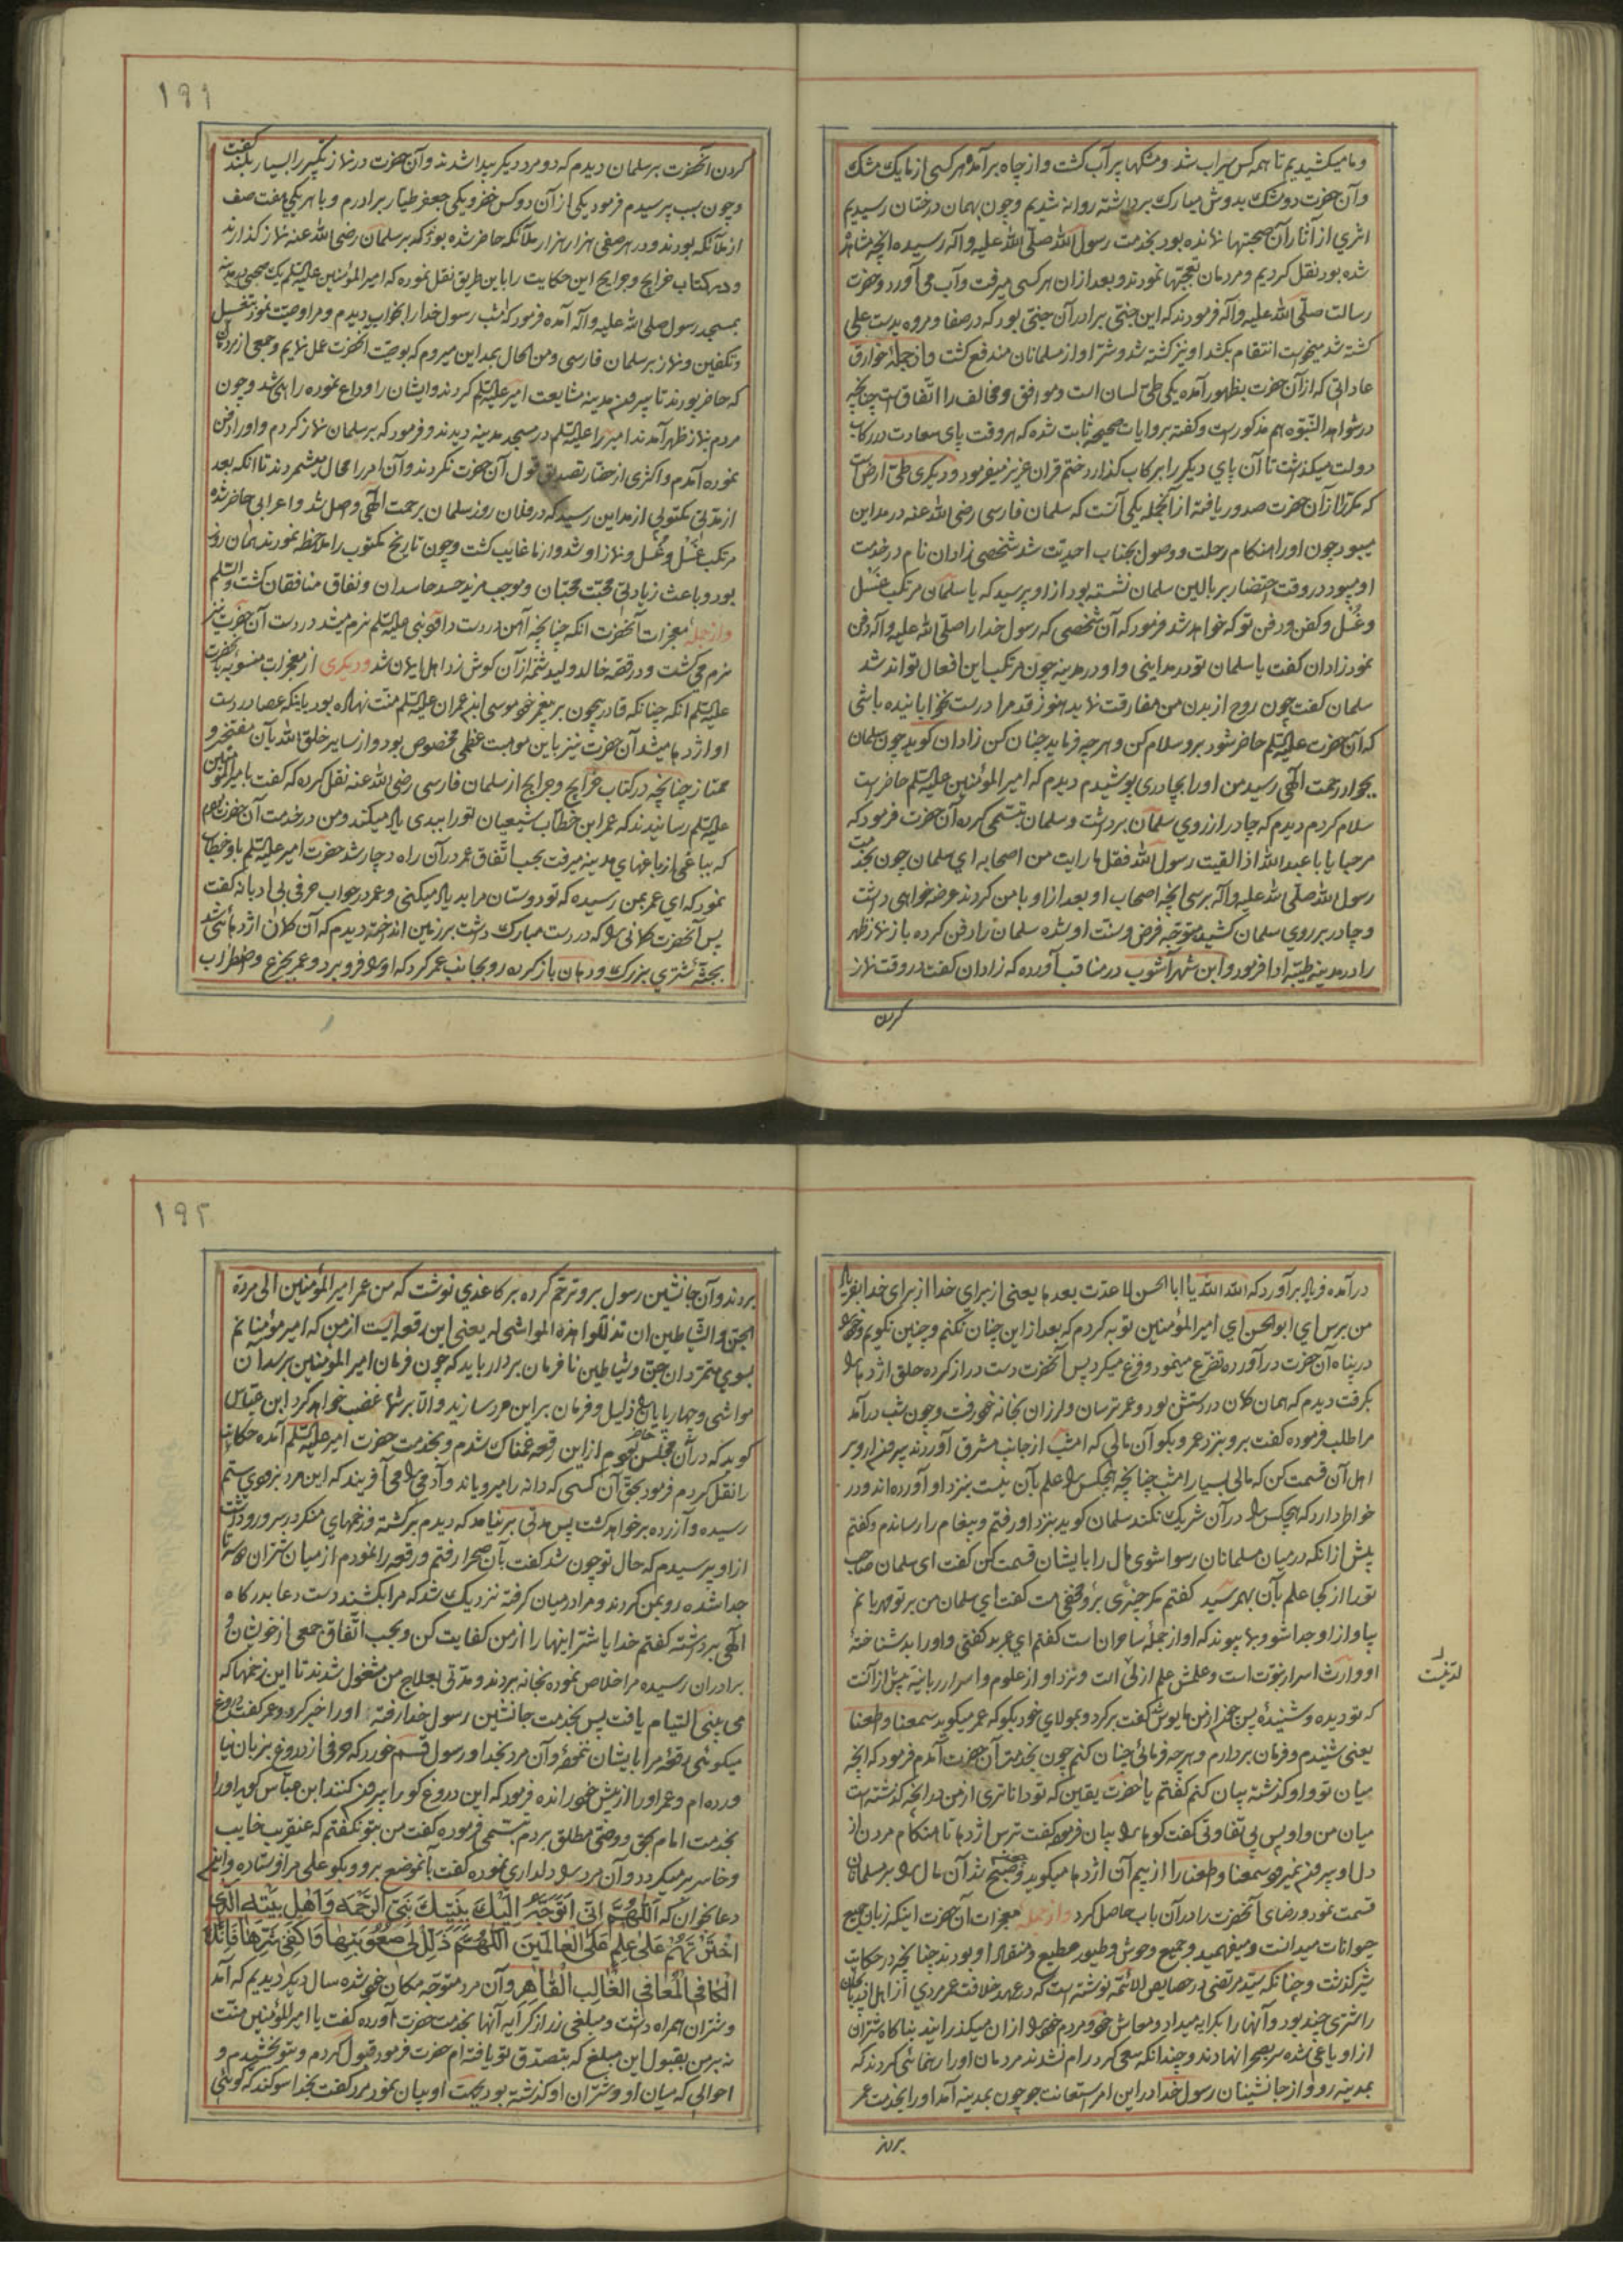 و ما میکشیدیم تا همه کس سیراب شد و مشکها پر آب گشت و از چاه برآمد و هر کسی از ما یک مشک
و آن حضرت دو مشک بدوش مبارک برداشته روانه شدیم و چون بهمان درختان رسیدیم
اثری از آثار آن صحبتها نمانده بود بخدمت رسول الله صلّی الله علیه و آله رسیده آنچه مشاهد
شده بود نقل کردیم و مردمان تعجبها نمودند و بعد از ان هر کسی میرفت و آب می آورد و حضرت
رسالت صلّی الله علیه و آله فرمودند که این جنّی برادر آن جنّی بود که در صفا و مروه بدست علی
کشته شد میخواست انتقام بکشد او نیز کشته شد و شرّ او از مسلمانان مندفع گشت و از جمله خوارق
عاداتی که از آن حضرت بظهور آمده یکی طیّ لسان است و موافق و مخالف را اتّفاق است چنانچه
در شواهد النّبوّه هم مذکورست و گفته بروایات صحیحه ثابت شده که هر وقت پای سعادت در رکاب
دولت میگذاشت تا آن پای دیگر را برکاب گذارد ختم قران عزیز میفرمود و دیگری طیّ ارض است
که مکرّرا از آن حضرت صدور یافته از آنجمله یکی آنست که سلمان فارسی رضی الله عنه در مداین
میبود چون او را هنگام رحلت و وصول بجناب احدیّت شد شخصی زادان نام در خدمت
او میبود در وقت احتضار بر بالین سلمان نشسته بود از او پرسید که یا سلمان مرتکب غَسْل
و غُسل و کفن و دفن تو که خواهد شد فرمود که آن شخصی که رسول خدا را صلّی الله علیه و آله دفن
نمود زادان گفت یا سلمان تو در مداینی و او در مدینه چون مرتکب این افعال تواند شد
سلمان گفت چون روح از بدن من مفارقت نماید هنوز قد مرا درست نخوابانیده باشی
که آن حضرت علیه السّلم حاضر شود برو سلام کن و هر چه فرماید چنان کن زادان گوید چون سلمان
بجوار رحمت الهی رسید من او را بچادری پوشیدم دیدم که امیر المؤمنین علیه السّلم حاضر است
سلام کردم دیدم که چادر از روی سلمان برداشت و سلمان تبسّمی کرده آن حضرت فرمود که
مرحبا یا با عبد الله اذا لقیت رسول الله فقل ما رایت من اصحابه ای سلمان چون بخدمت
رسول الله صلّی الله علیه و آله برسی آنچه اصحاب او بعد از او با من کردند عرضه خواهی داشت
و چادر بر روی سلمان کشید متوجّه فرض و سنّت او شده سلمان را دفن کرده باز نماز ظهر
را در مدینه طیّبه ادا فرمود و ابن شهرآشوب در مناقب آورده که زادان گفت در وقت نماز
کردن
۱۹۱
کردن آنحضرت بر سلمان دیدم که دو مرد دیگر پیدا شدند و آن حضرت در نماز تکبیر را بسیار بلند گفت
و چون سبب پرسیدم فرمود یکی از آن دو کس خضر و یکی جعفر طیّار برادرم و با هر یکی هفت صف
از ملائکه بودند و در هر صفی هزار هزار ملائکه حاضر شده بود که بر سلمان رضی الله عنه نماز گذارند
و در کتاب خرایج و جرایح این حکایت را باین طریق نقل نموده که امیر المؤمنین علیه السّلم یک صبحی در مدینه
بمسجد رسول صلی الله علیه و آله آمده فرمود که امشب رسول خدا را بخواب دیدم و مرا وصیّت نمود بتغسیل
و تکفین و نماز بر سلمان فارسی و من الحال بمداین میروم که بوصیّت آنحضرت عمل نمایم و جمعی از مردمان
که حاضر بودند تا بیرون مدینه مشایعت امیر علیه السّلم کردند و ایشان را وداع نموده راهی شد و چون
مردم بنماز ظهر آمدند امیر را علیه السّلم در مسجد مدینه دیدند و فرمود که بر سلمان نماز کردم و او را دفن
نموده آمدم و اکثری از حضار تصدیق قول آن حضرت نکردند و آن امر را محال میشمردند تا آنکه بعد
از مدّتی مکتوبی از مداین رسید که در فلان روز سلمان برحمت الهی واصل شد و اعرابی حاضر شده
مرتکب غَسْل و غُسل و نماز او شد و از ما غایب گشت و چون تاریخ مکتوب را ملاحظه نمودند همان روز
بود و باعث زیادتی محبّت محبّان و موجب مزید حسد حاسدان و نفاق منافقان گشت و السّلم
و از جمله معجزات آنحضرت آنکه چنانچه آهن در دست داود نبی علیه السّلم نرم میشد در دست آن حضرت نیز
نرم می گشت و در قصّه خالد ولید شمّه از آن گوش زد اهل ایمان شد و دیگری از معجزات منسوبه بآنحضرت
علیه السّلم آنکه چنانکه قادر بیچون بر پیغمر خود موسی ابن عمران علیه السّلم منّت نهاده بود باینکه عصا در دست
او اژدها میشد آن حضرت نیز باین موهبت عظمی مخصوص بود و از سایر خلق الله بآن مفتخر و
ممتاز چنانچه در کتاب خرایج و جرایح از سلمان فارسی رضی الله عنه نقل کرده که گفت بامیر المؤمنین
علیه السّلم رسانیدند که عمر ابن خطّاب شیعیان تو را ببدی یاد میکند و من در خدمت آن حضرت بودم
که بباغی از باغهای مدینه میرفت بحسب اتّفاق عمر در آن راه دچار شد حضرت امیر علیه السّلم با و خطاب
نمود که ای عمر بمن رسیده که تو دوستان مرا بد یاد میکنی و عمر در جواب حرفی بی ادبانه گفت
پس آنحضرت کمانی را که در دست مبارک داشت بر زمین انداخته دیدم که آن کمان اژدهائی شد
بجثّه شتری بزرگ و دهان باز کرده رو بجانب عمر کرد که او را فرو برد و عمر بجزع و اضطراب
در آمده فریاد برآورد که الله الله یا ابا الحسن لا عدت بعدها یعنی از برای خدا از برای خدا بفریاد
من برس ای ابو الحسن ای امیر المؤمنین توبه کردم که بعد از این چنان نکنم و چنین نگویم و خود را
در پناه آن حضرت درآورده تضرّع مینمود و فزع میکرد پس آنحضرت دست دراز کرده حلق اژدها را
بگرفت دیدم که همان کمان در دستش بود و عمر ترسان و لرزان بخانه خود رفت و چون شب درآمد
مرا طلب فرموده گفت برو بنزد عمر و بگو آن مالی که امشب از جانب مشرق آوردند بیرون آر و بر
اهل آن قسمت کن که مالی بسیار امشب چنانچه هیچکس را علم بآن نیست بنزد او آورده اند و در
خواطر دارد که هیچکس را در آن شریک نکند سلمان گوید بنزد او رفتم و پیغام را رساندم و گفتم
پیش از انکه در میان مسلمانان رسوا شوی مال را بایشان قسمت کن گفت ای سلمان صاحب
تو را از کجا علم بآن بهم رسید گفتم مگر چیزی بر او مخفی است گفت ای سلمان من بر تو مهربانم
بیا و از او جدا شو و بما پیوند که او از جملهٔ ساحران است گفتم ای عمر بد گفتی و او را بد شناختهٔ
او وارث اسرار نبوّت است و علمش علم از لیّ است و نزد او از علوم و اسرار ربانیّه بیش از آنست
که تو دیده و شنیدهٔ پس عمر از من مایوش گفت برگرد و بمولای خود بگو که عمر میگوید سمعنا و اطعنا
یعنی شنیدم و فرمان بردارم و هر چه فرمائی چنان کنم چون بخدمت آن حضرت آمدم فرمود که آنچه
میان تو و او گذشته بیان کنم گفتم یا حضرت یقین که تو داناتری از من در آنچه گذشته است
میان من و او پس بی تفاوتی گفت گو ها را بیان فرموده گفت ترس اژدها تا هنگام مردن از
دل او بیرون نمیرود سمعنا و اطعنا را از بیم آن اژدها میگوید و چون صبح شد آن مال را بر مسلمانان
قسمت نمود و رضای آنحضرت را در آن باب حاصل کرد و از جمله معجزات آن حضرت اینکه زبان جمیع
حیوانات میدانست و میفهمید و جمیع وحوش و طیور مطیع و منقاد او بودند چنانچه در حکایت
شیر گذشت و چنانکه سیّد مرتضی در خصایص الائمّه نوشته است که در عهد خلافت عمر مردی از اهل اذربایجان
را شتری چند بود و آنها را بکرایه میداد و معاش خود و مردم خود را از ان میگذرانید بناگاه شتران
از او یاغی شده سر بصحرا نهادند و چندانکه سعی کرد رام نشدند مردمان او را رنمائی کردند که
بمدینه رو و از جانشینان رسول خدا در این امر استعانت جو چون بمدینه آمد او را بخدمت عمر
بردند
۱۹۲
بردند و آن جانشین رسول برو ترحّم کرده بر کاغذی نوشت که من عمر امیر المؤمنین الی مردة
الجنّ و الشّیاطین ان تذلّلوا هذه المواشی له یعنی این رقعه ایست از من که امیر مؤمنانم
بسوی متمرّدان جنّ و شیاطین نا فرمان بردار باید که چون فرمان امیر المؤمنین برسد آن
مواشی و چهارپایان را ذلیل و فرمان بر این مرد سازید و الّا بر شما غضب خواهد کرد ابن عبّاس
گوید که در آن مجلس حاضر بودم از این رقعه غمناک شدم و بخدمت حضرت امیر علیه السّلم آمده حکایت
را نقل کردم فرمود بحقّ آن کسی که دانه را میرویاند و آدمی را می آفریند که این مرد بزودی ستم
رسیده و آزرده بر خواهد گشت پس مدّتی برنیامد که دیدم برگشته و زخمهای منکر در سر و رو داشت
از او پرسیدم که حال تو چون شد گفت بآن صحرا رفتم و رقعه را نمودم از میان شتران
جدا شده رو بمن کردند و مرا در میان گرفته نزدیک شد که مرا بکشند دست دعا بدرگاه
الهی برداشته گفتم خدایا شرّ اینها را از من کفایت کن و بحسب اتّفاق جمعی از خویشان و
برادران رسیده مرا خلاص نموده بخانه بردند و مدّتی بعلاج من مشغول شدند تا این زخمها که
می بینی التیام یافت پس بخدمت جانشین رسول خدا رفته او را خبر کرد و عمر گفت دروغ
میگوئی رقعهٔ مرا بایشان ننمودهٔ و آن مرد بخدا و رسول قسم خورد که حرفی از دروغ بزبان نیا
ورده ام و عمر او را از پیش خود رانده فرمود که این دروغ گو را بیرون کنند ابن عبّاس گوید او را
بخدمت امام بحق و وصّی مطلق بردم تبسّمی فرموده گفت من بتو نگفتم که عنقریب خایب
و خاسر برمیگردد و آن مرد را دلداری نموده گفت بآنموضع برو و بگو علی مرا فرستاده و این
دعا بخوان که اَللّٰهُمَّ اِنّی اَتَوَجَّهُ اِلَیْکَ بِنَبِیِّکَ نَبِیِّ الرَّحْمَه وَ اَهْلِ بَیْتِهِ الَّذینَ
اخْتَرْتَهُمْ عَلیٰ عِلْمٍ عَلَی الْعالَمینَ اَللّٰهُمَّ ذَلِّلْ لی صُعُوبَتَها وَ اکْفِنی شَرَّها فَاِنَّکَ
الکافی الْمُعافی الغالِب القاهِر و آن مرد متوجّه مکان خود شده سال دیگر دیدیم که آمد
و شتران همراه داشت و مبلغی زر از کرایه آنها بخدمت حضرت آورده گفت یا امیر المؤمنین منّت
نه بر من بقبول این مبلغ که بتصدّق تو یافته ام حضرت فرمود قبول کردم و بتو بخشیدم و
احوالی که میان او و شتران او گذشته بود بجهت او بیان نمود مرد گفت بخدا سوگند که گوئی